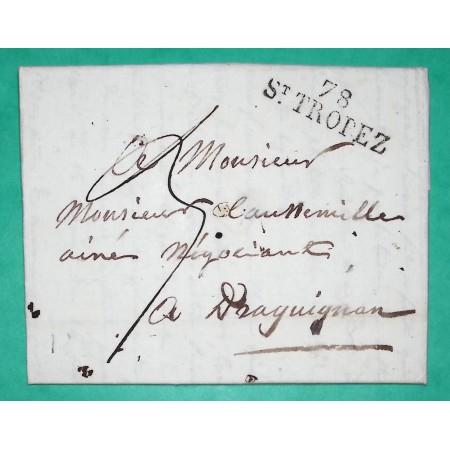 78
ST TROPEZ
A Monsieur
Monsieur Caussemille
ainé Négociant
a Draguignan